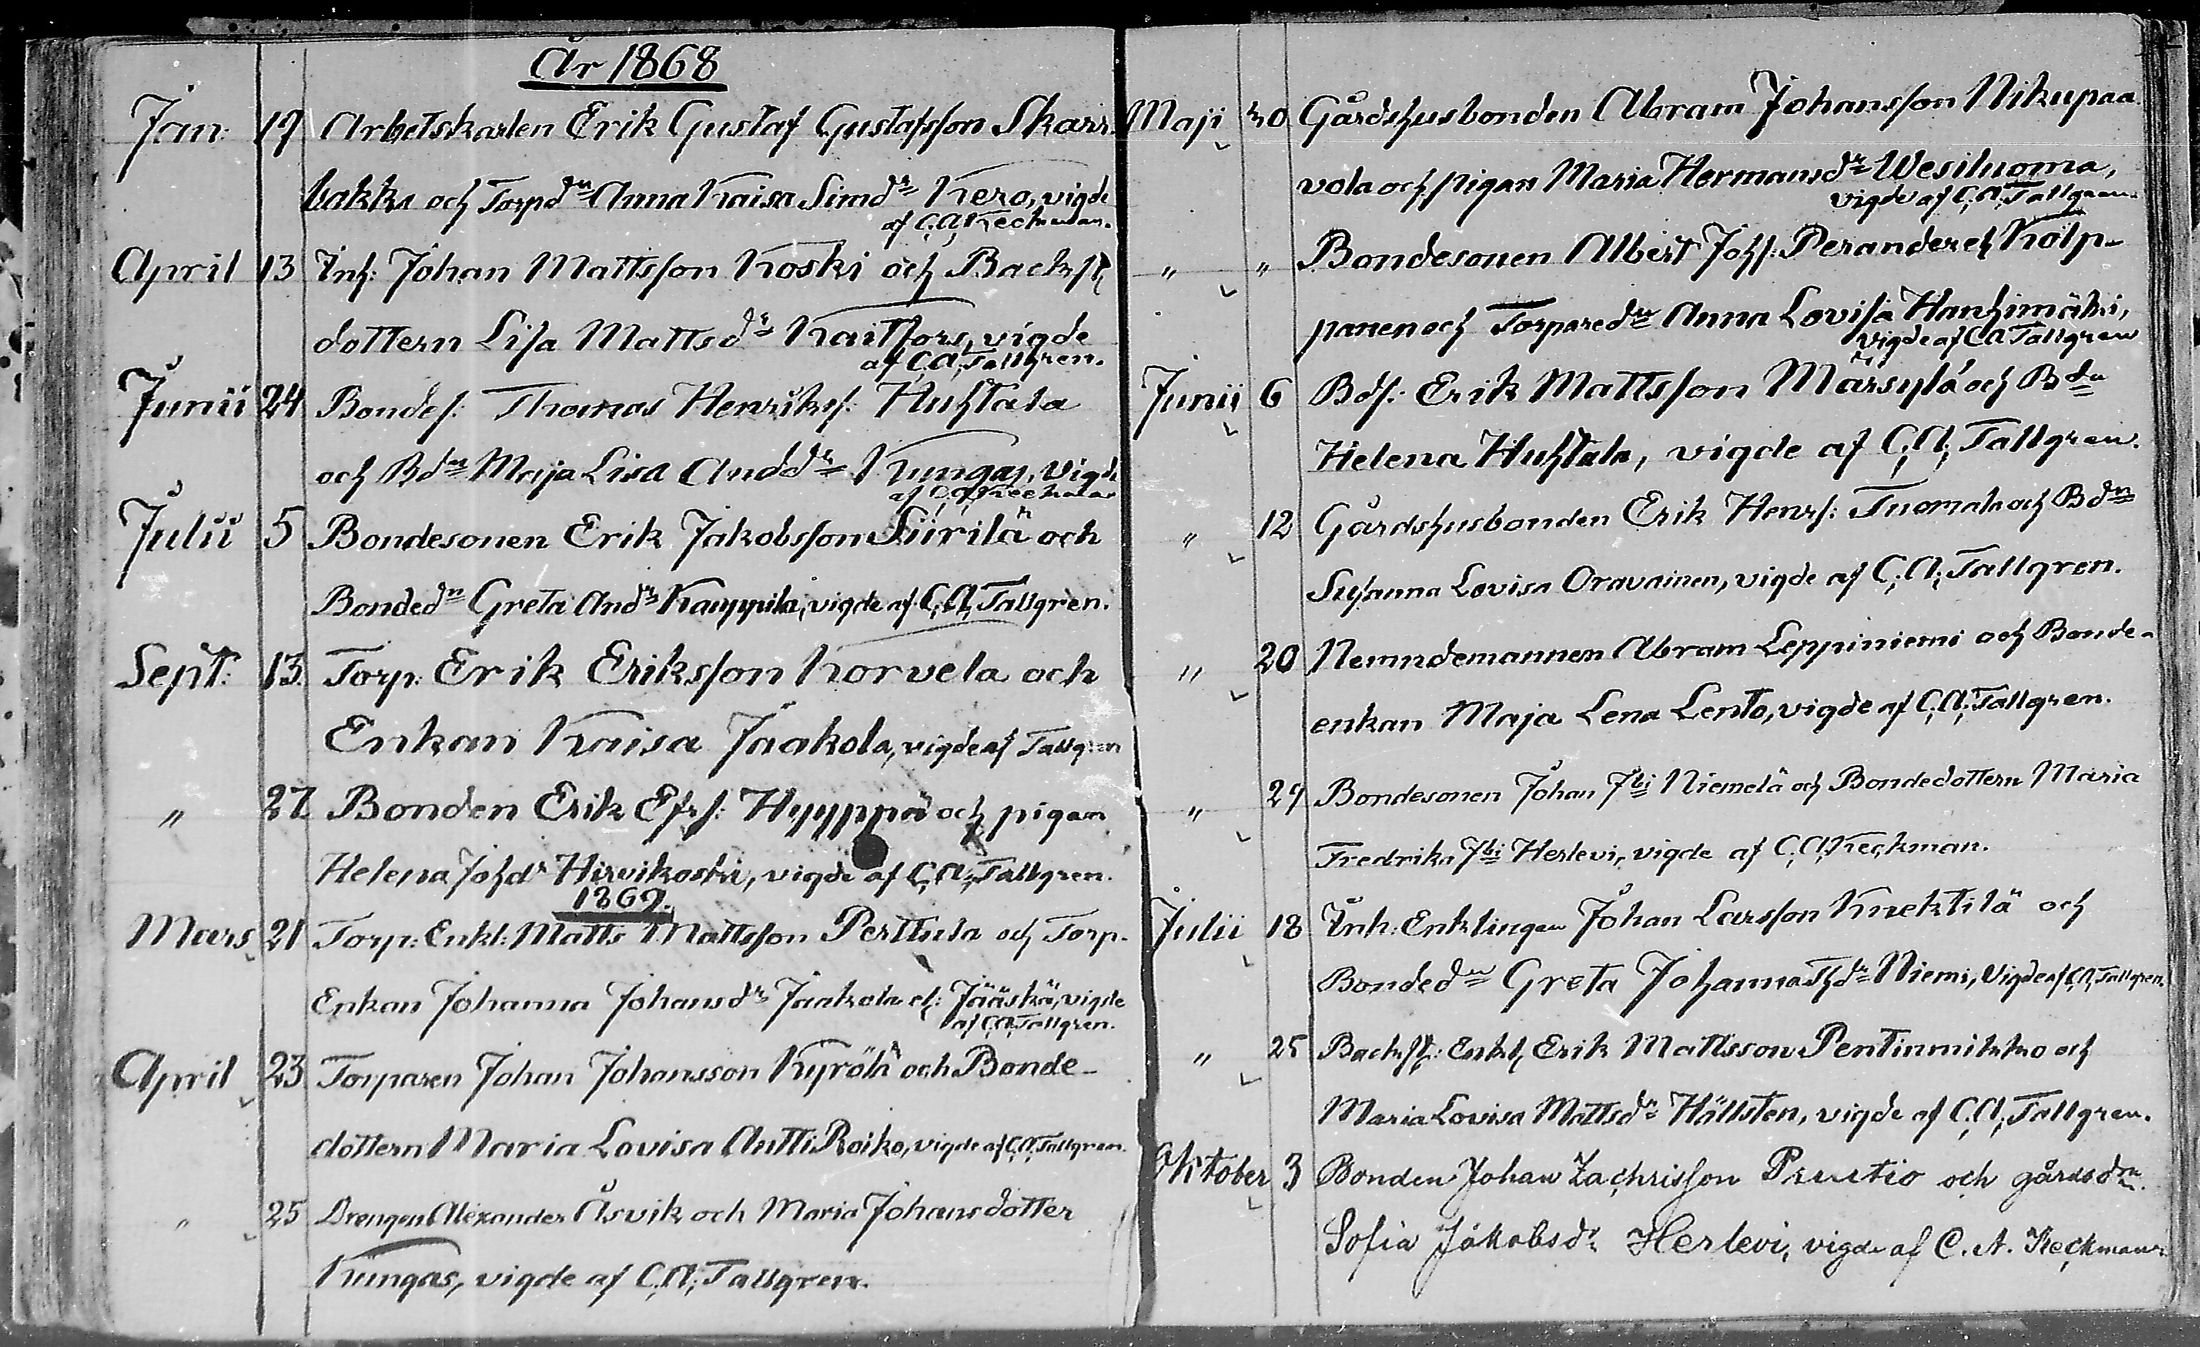 År 1868
Jan: 19 Arbetskarlen Erik Gustaf Gustafsson Skarr-
bakka och Torpdn Anna Kaisa Simdr Kero, vigde
af C,A,Keckman.
April 13 Inh: Johan Mattsson Koski och Backst
dottern Lisa Mattsdr Kaitfors, vigde
af C,A,Tallgren.
Junii 24 Bondes: Thomas Henriks: Huhtala
och Bdn Maja Lisa Anddr Kungas, vigde
af C,A,Keckman
Julii 5 Bondesonen Erik Jakobsson Siirilä och
Bondedn Greta Anddr Kauppila, vigde af C,A,Tallgren.
Sept: 13. Torp: Erik Eriksson Korvela och
Enkan Kaisa Jaakola, vigde af Tallgren
" 27 Bonden Erik Efrs: Hyyppä och pigan
Helena Johdr Hirvikoski, vigde af C,A,Tallgren.
1869.
Mars 21 Torp: Enkl: Matts Mattsson Perttula och Torp.
Enkan Johanna Johansdr Jaakola el: Jääskä, vigde
af C,A,Tallgren.
April 23 Torparen Johan Johansson Kyrölä och Bonde-
dottern Maria Lovisa Antti Roiko, vigde af C,A,Tallgren.
" 25 Drengen Alexander Åsvik och Maria Johansdotter
Kungas, vigde af C,A,Tallgren.
Maji 30 Gårdshusbonden Abram Johansson Nikupaa
vola och pigan Maria Hermansdr Wesiluoma,
vigde af C,A,Tallgren.
" " Bondesonen Albert Johs: Perander eh Kölp-
panen och Torparedn Anna Lovisa Hanhimäki,
vigde af CA Tallgren
Junii 6 Bds: Erik Mattsson Märsylä och Bdn
Helena Huhtala, vigde af C,A,Tallgren.
" 12 Gårdshusbonden Erik Henrs: Tuomala och Bdn
Susanna Lovisa Oravainen, vigde af C,A,Tallgren.
" 20 Nemndemannen Abram Leppiniemi och Bonde-
enkan Maja Lena Lento, vigde af C,A,Tallgren.
" 29 Bondesonen Johan Jbi Niemelä och Bondedottern Maria
Fredrika Jbi Herlevi, vigde af C,A,Keckman.
Julii 18 Inh: Enklingen Johan Larsson Knektilä och
Bondedn Greta Johanna Jhdr Niemi, Vigde af C,A,Tallgren.
" 25 Backst: Enkl, Erik Mattsson Pentinmikko och
Maria Lovisa Mattsdr Hällsten, vigde af C,A,Tallgren.
Oktober 3 Bonden Johan Zachrisson Pruutio och gårdsdn.
Sofia Jakobsdr Herlevi, vigde af C. A. Keckman